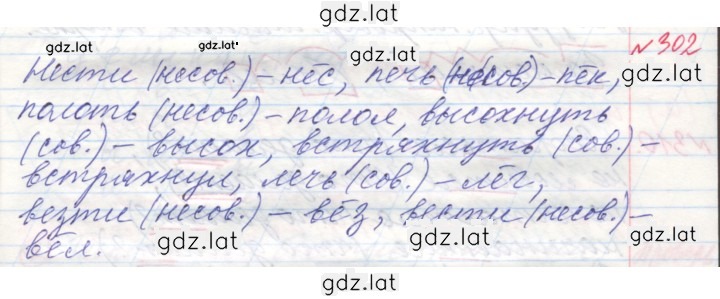 gdz.lat
gdz.lat gdz.lat
№302
Нести (несов.) – нёс, печь (несов) – пёк,
gdz.lat gdz.lat
полоть (несов.) – полол, высохнуть
(сов.) – высох, встряхнуть (сов.) –
gdz.lat gdz.lat
встряхнул, лечь (сов.) – лёг,
везти (несов.) – вёз, вести (несов.) –
gdz.lat gdz.lat
вёл.
gdz.lat